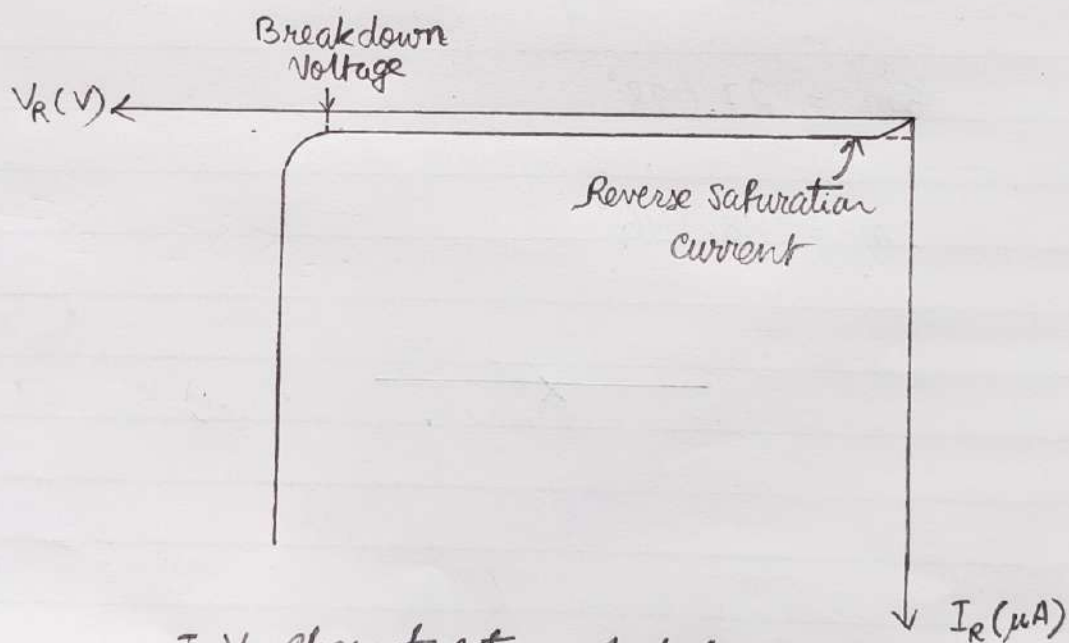 Breakdown
Voltage
V_R (V)
Reverse Saturation
Current
I_R (μA)